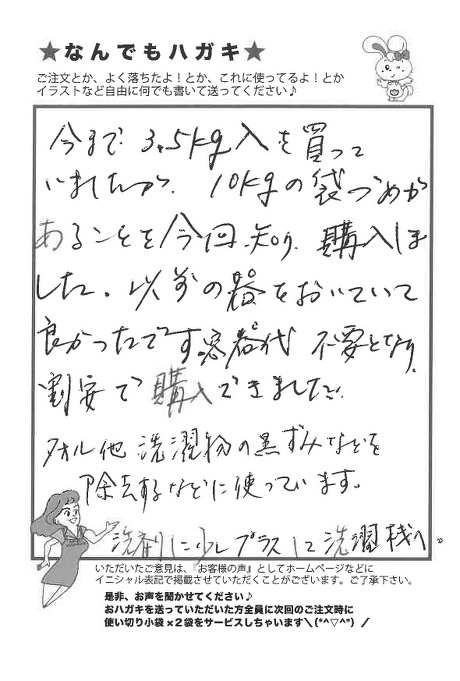 ★なんでもハガキ★
ご注文とか、よく落ちたよ！とか、これに使ってるよ！とか
イラストなど自由に何でも書いて送ってください♪
今まで 3.5kg入を買って
いましたが、10kgの袋づめが
あることを今回知り、購入しま
した。以前の器をおいていて
良かったです。容器代 不要となり、
割安で購入できました。
タオル他 洗濯物の黒ずみなどを
除去するなどに使っています。
洗剤に少しプラスして洗濯機へ。
いただいたご意見は、『お客様の声』としてホームページなどに
イニシャル表記で掲載させていただくことがございます。ご了承下さい。
是非、お声を聞かせてください♪
おハガキを送っていただいた方全員に次回のご注文時に
使い切り小袋×2袋をサービスしちゃいます＼(*^▽^*)／